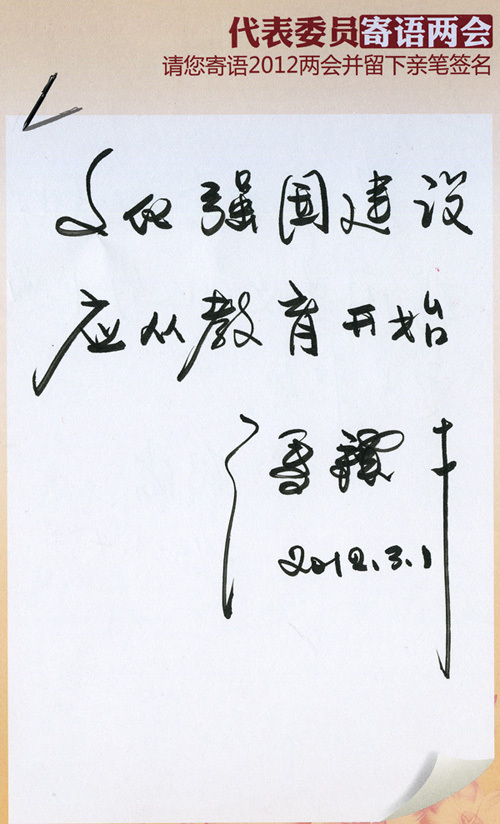 代表委员寄语两会
请您寄语2012两会并留下亲笔签名
文化强国建设
应从教育开始
2012.3.1